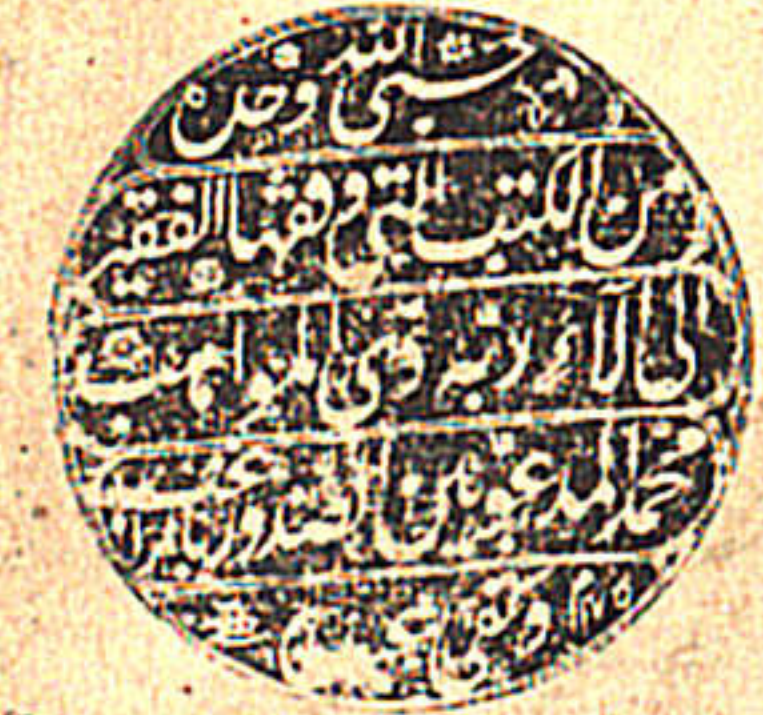 حسبي الله وحده
من الكتب التي وقفها الفقير
الى آلاء ربه ذي المواهب
محمد المدعو بين الصدور براغب